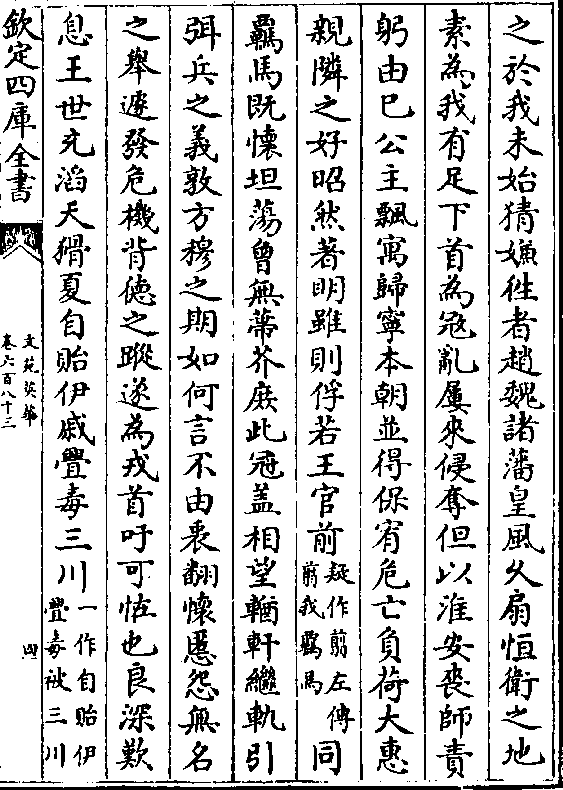 之於我未始猜嫌徃者趙魏諸藩皇風乆扇恒衛之地
素為我有足下首為冦亂屢來侵奪但以淮安喪師責
躬由已公主飄寓歸寧本朝並得保宥危亡負荷大惠
親隣之好昭然著明雖則俘若王官前疑作翦左傳翦我羈馬同
羈馬既懐坦蕩曾無蔕芥庶此冠盖相望輶軒繼軌引
弭兵之義敦方穆之期如何言不由衷翻懐慝怨無名
之舉遽發危機背徳之蹤遂為戎首吁可怪也良深歎
息王世充滔天猾夏自貽伊戚亹毒三川一作自貽伊亹毒被三川
欽定四庫全書
文苑英華
卷六百八十三
四